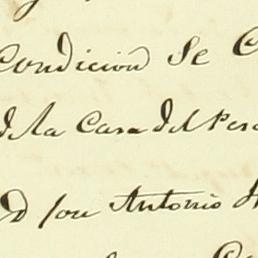 Condicion Se
de la Casa del
D Jose Antonio